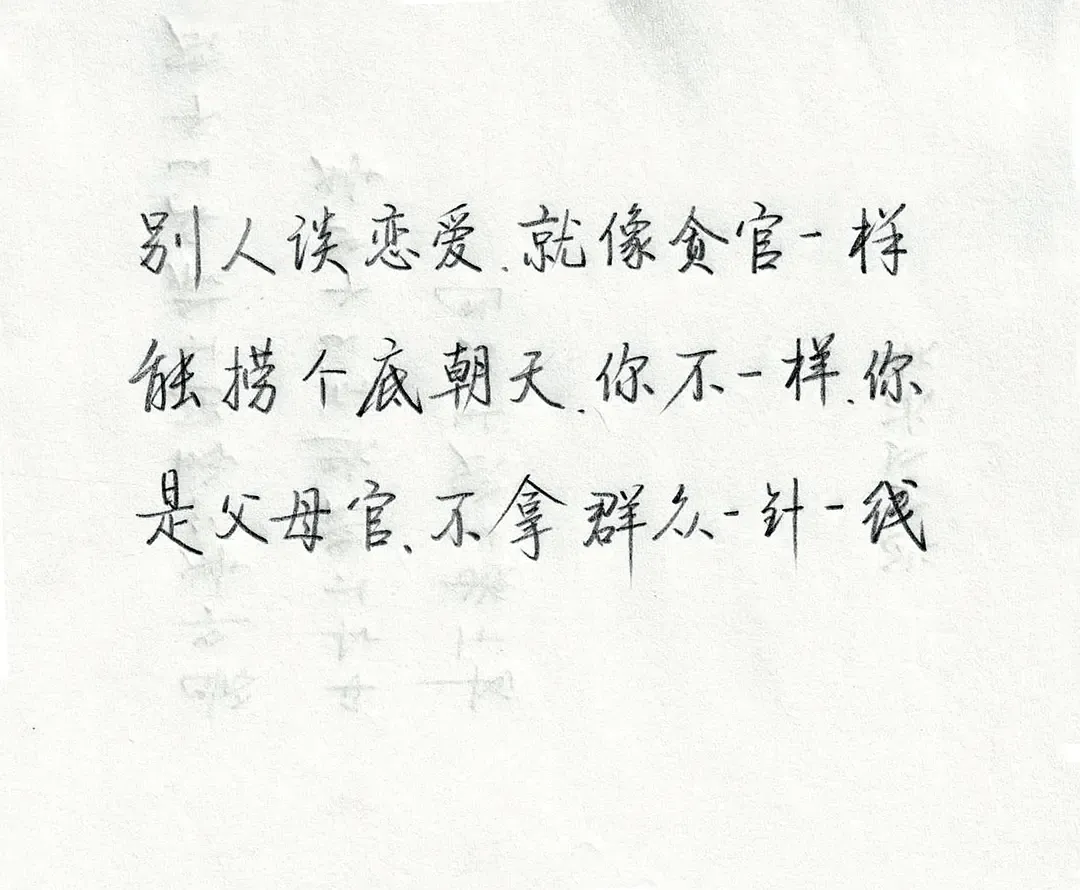 别人谈恋爱、就像贪官一样
能捞个底朝天、你不一样、你
是父母官、不拿群众一针一线